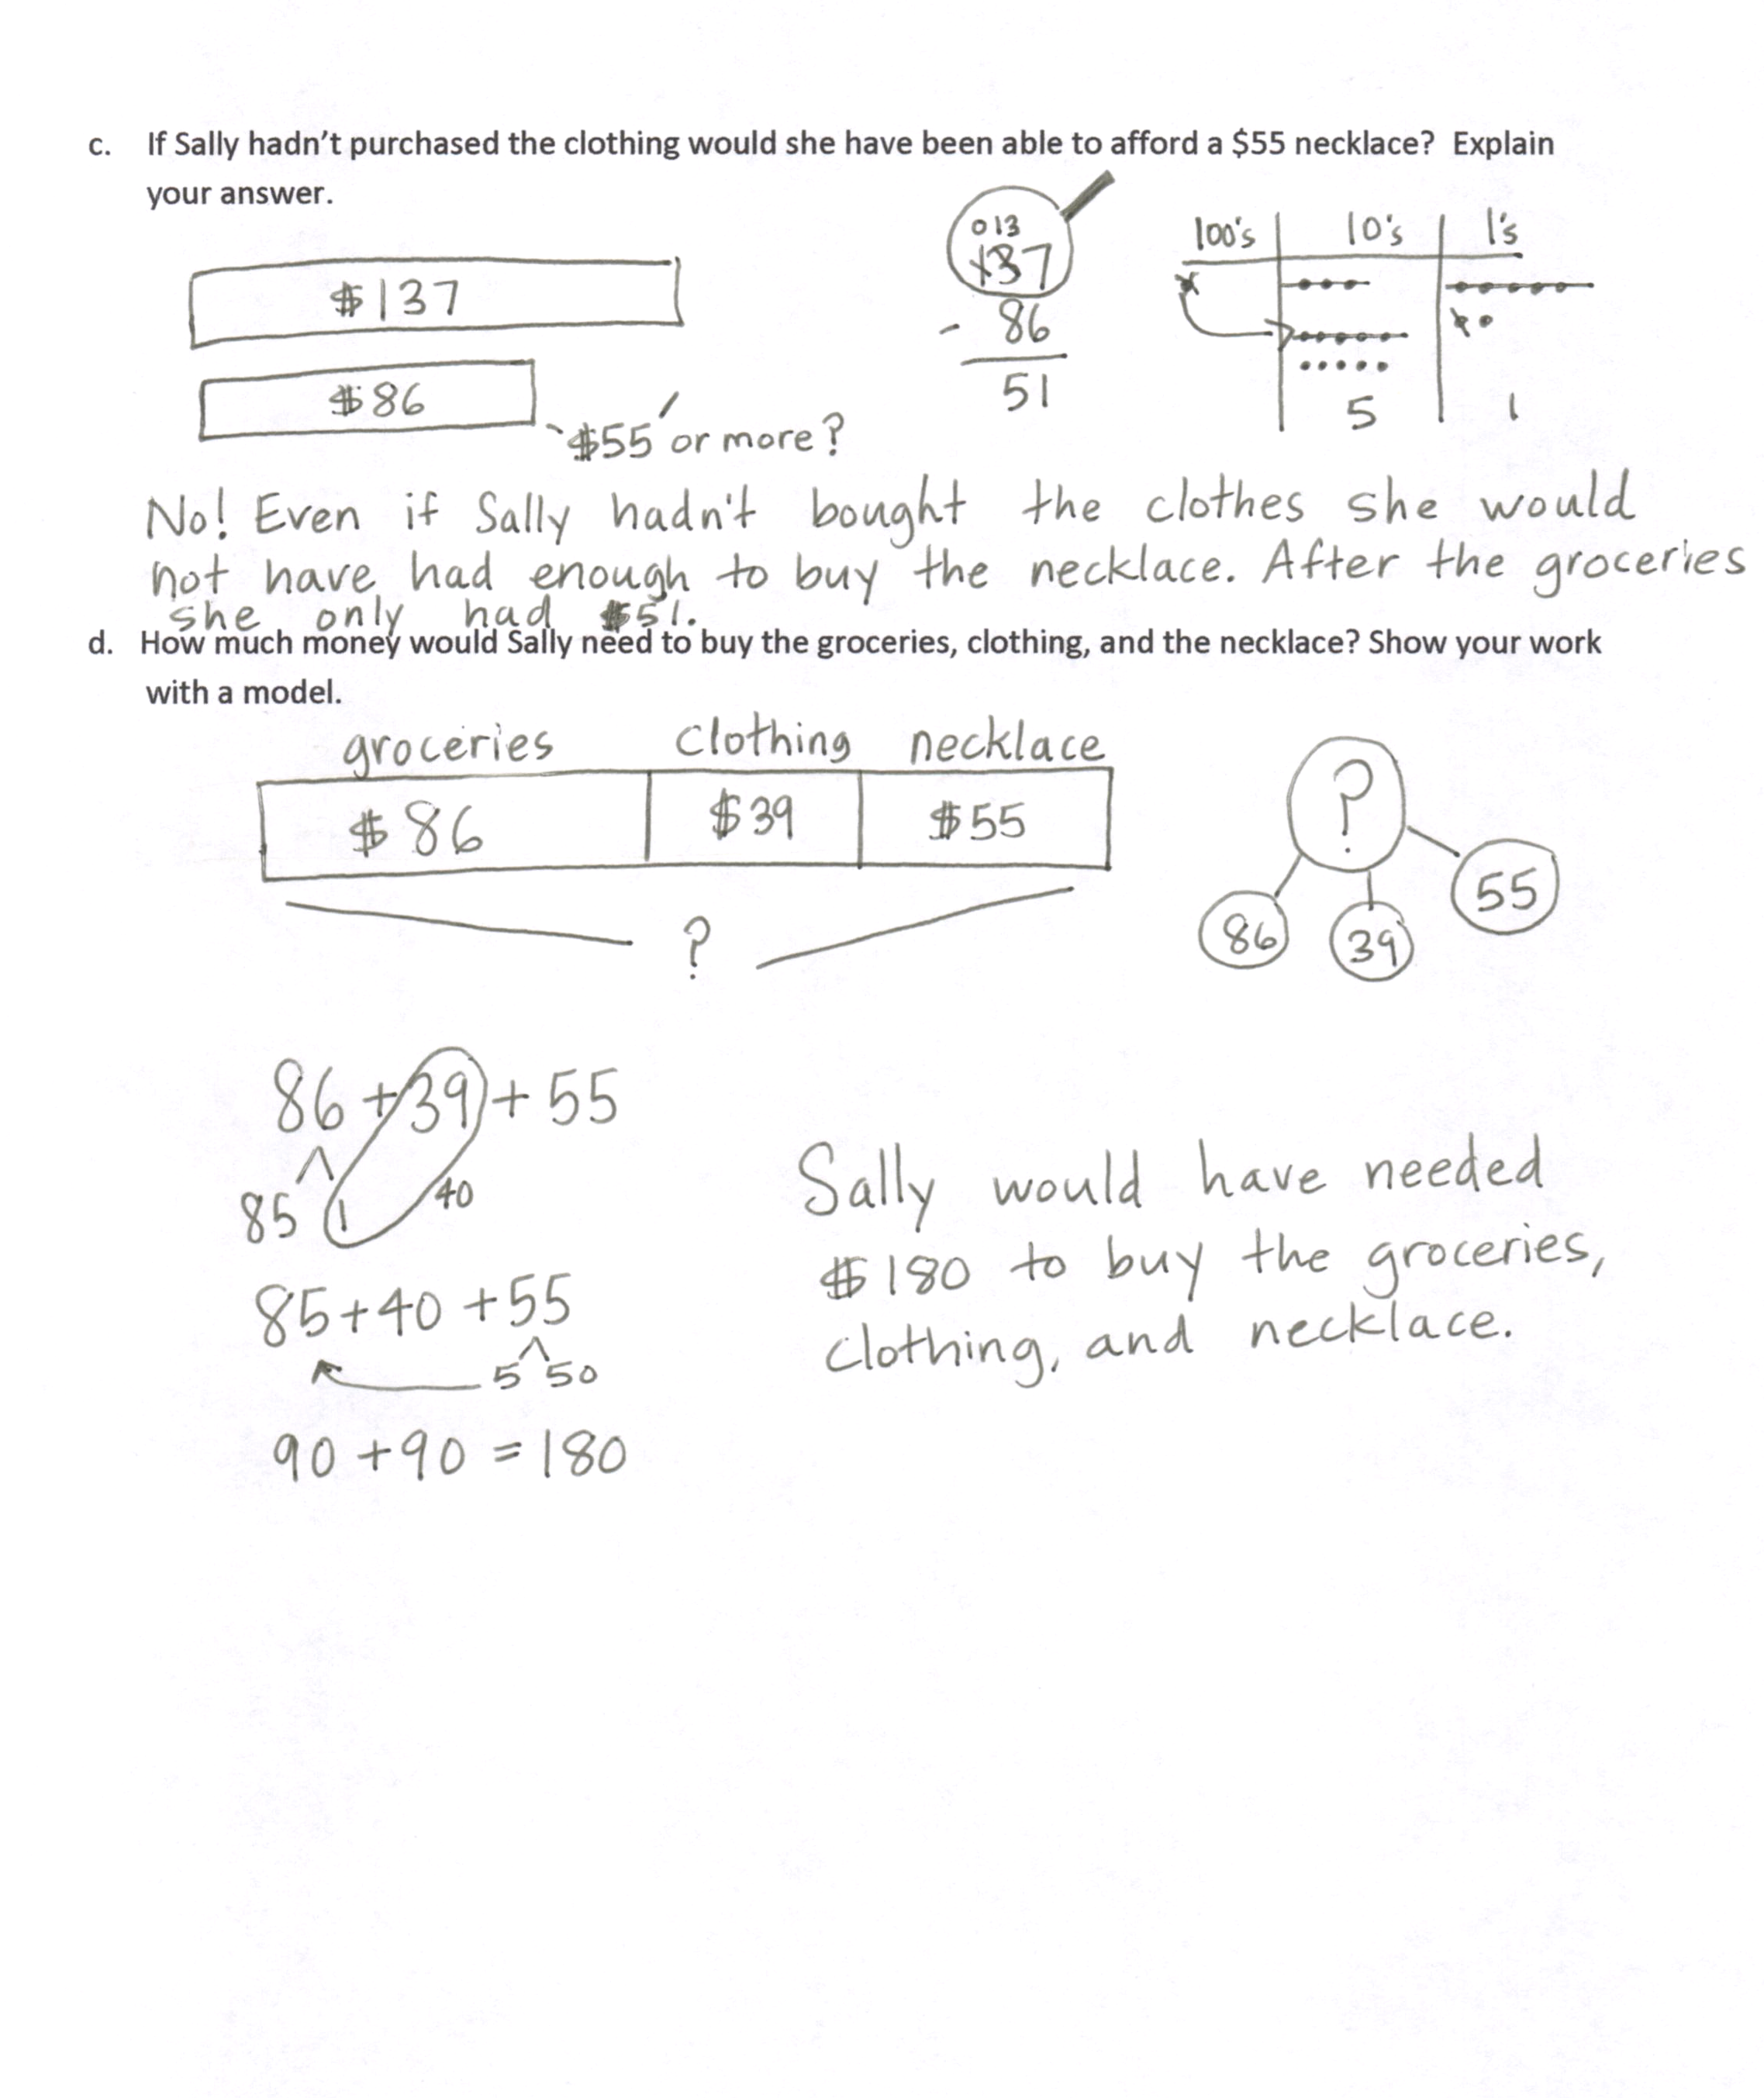 c. If Sally hadn't purchased the clothing would she have been able to afford a $55 necklace? Explain
your answer.
$137
$86
$55 or more?
013
137
- 86
51
100's 10's 1's
5 1
No! Even if Sally hadn't bought the clothes she would
not have had enough to buy the necklace. After the groceries
she only had $51.
d. How much money would Sally need to buy the groceries, clothing, and the necklace? Show your work
with a model.
groceries clothing necklace
$86 $39 $55
?
?
86 39 55
86 + 39 + 55
85 1 40
85 + 40 + 55
5 50
90 + 90 = 180
Sally would have needed
$180 to buy the groceries,
clothing, and necklace.